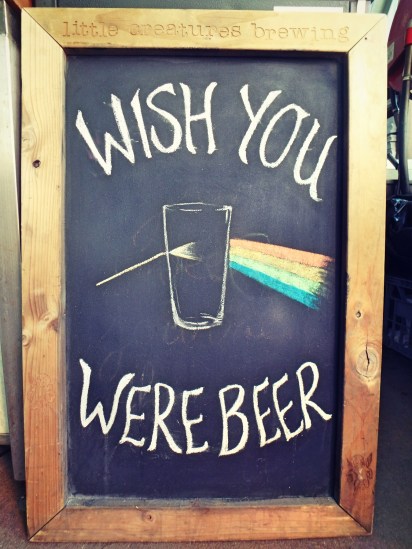 little creatures brewing
WISH YOU
WERE BEER